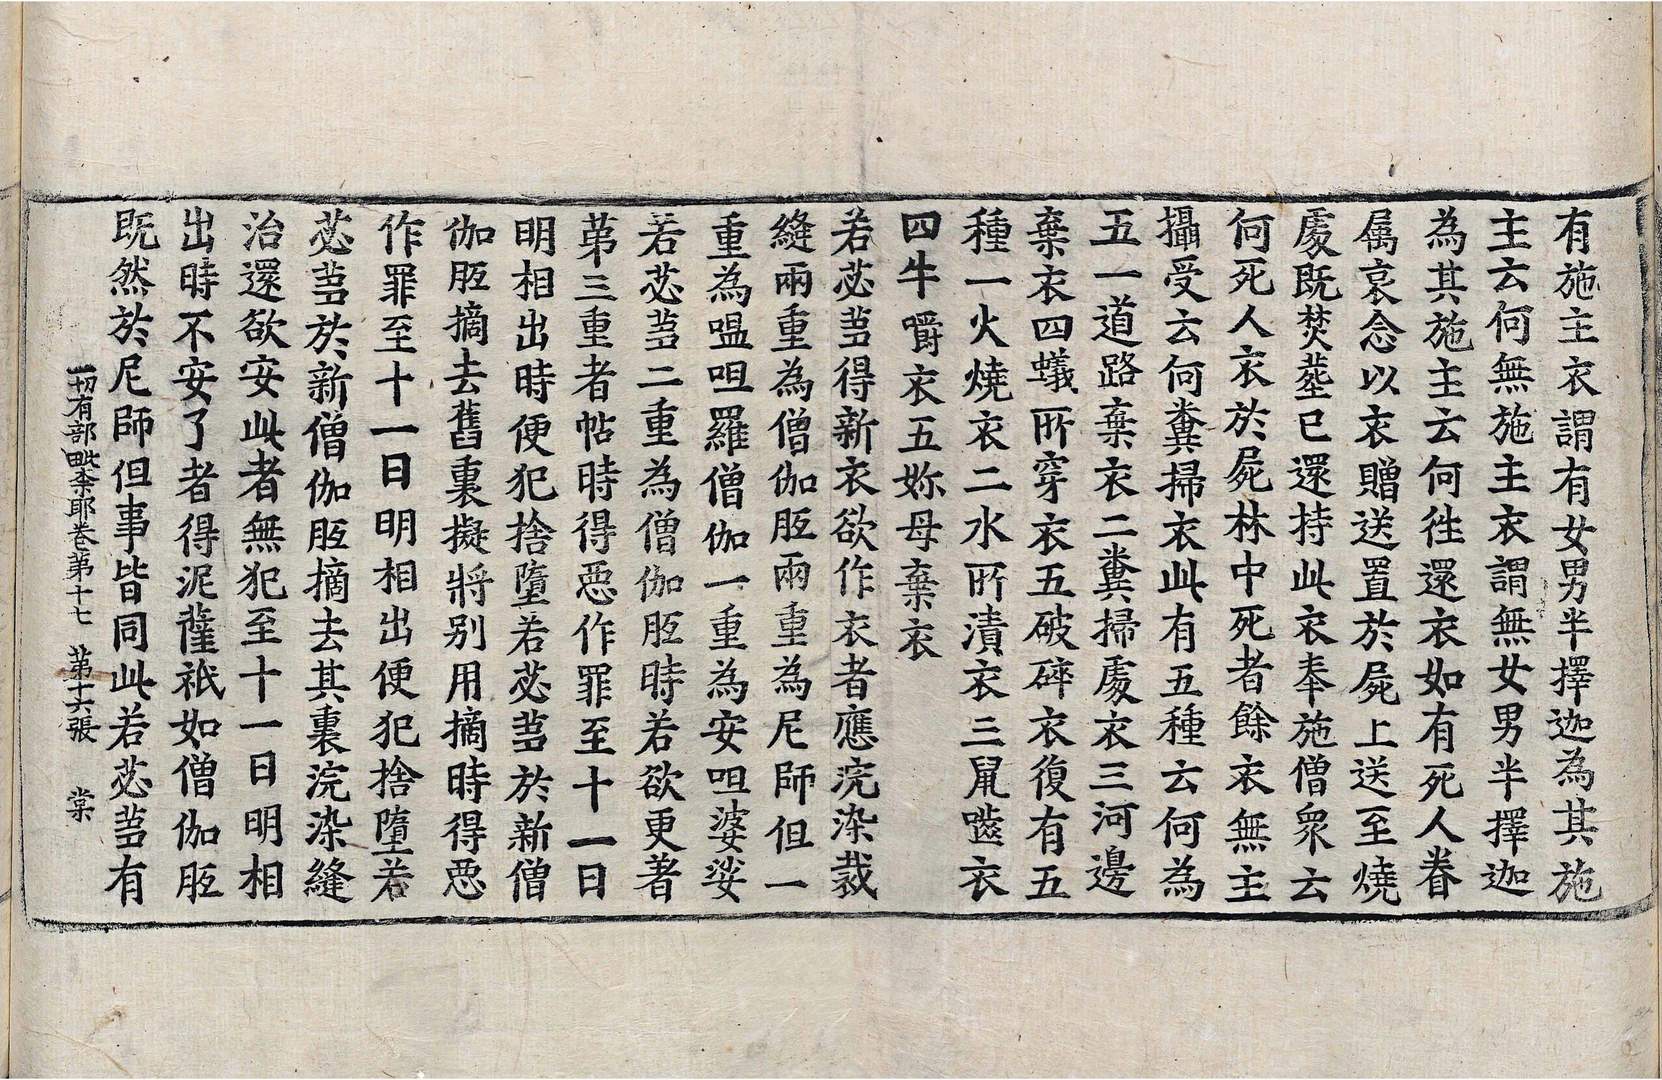 有施主衣謂有女男半擇迦為其施
主云何無施主衣謂無女男半擇迦
為其施主云何徃還衣如有死人眷
屬哀念以衣贈送置於屍上送至燒
處既焚葬已還持此衣奉施僧衆云
何死人衣於屍林中死者餘衣無主
攝受云何糞掃衣此有五種云何為
五一道路棄衣二糞掃處衣三河邊
棄衣四蟻所穿衣五破碎衣復有五
種一火燒衣二水所漬衣三鼠囓衣
四牛嚼衣五妳母棄衣
若苾蒭得新衣欲作衣者應浣染裁
縫兩重為僧伽胝兩重為尼師但一
重為嗢呾羅僧伽一重為安呾婆娑
若苾蒭二重為僧伽胝時若欲更著
苐三重者帖時得惡作罪至十一日
明相出時便犯捨墮若苾蒭於新僧
伽胝摘去舊裏擬將别用摘時得惡
作罪至十一日明相出便犯捨墮若
苾蒭於新僧伽胝摘去其裏浣染縫
治還欲安此者無犯至十一日明相
出時不安了者得泥薩祇如僧伽胝
既然於尼師但事皆同此若苾蒭有
一切有部毗奈耶卷苐十七　苐十六張　棠